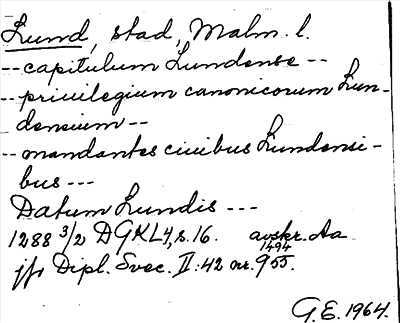 Lund, stad, Malm. l.
-- capitulum Lundense --
-- priuilegium canonicorum Lun-
densium --
-- mandantes ciuibus Lundensi-
bus ---
Datum Lundis ---
1288 3/2 DGKL4, s. 16. avskr. Aa
1494
jfr Dipl. Svec. II:42 nr. 955.
G.E. 1964.